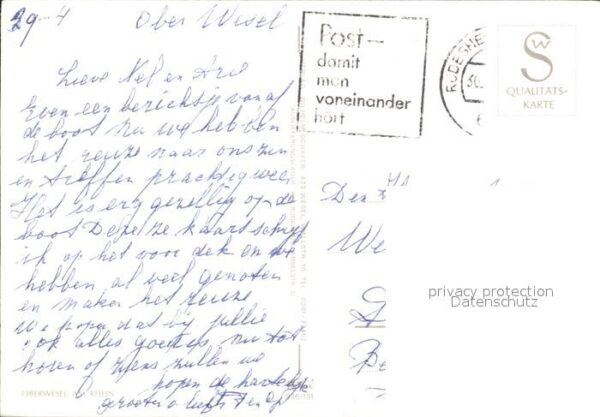 29-4 Ober Wesel
Lieve Nel en Arie
Even een berichtje vanaf
de boot Nu we hebben
het reuze naar ons zin
en treffen prachtig weer
Het is erg gezellig op de
boot Deze ze kaart schrijf
ik op het voor dek en we
hebben al veel genoten
en maken het reuze
We hopen dat bij jullie
ook alles goed is, nu tot
horen of ziens zullen we
hopen de hartelijke
groeten
OBERWESEL AM RHEIN
Post-
damit
man
voneinander
hört
RÜDESHE
30.
6
SW
QUALITÄTS-
KARTE
Den
We
privacy protection
Datenschutz